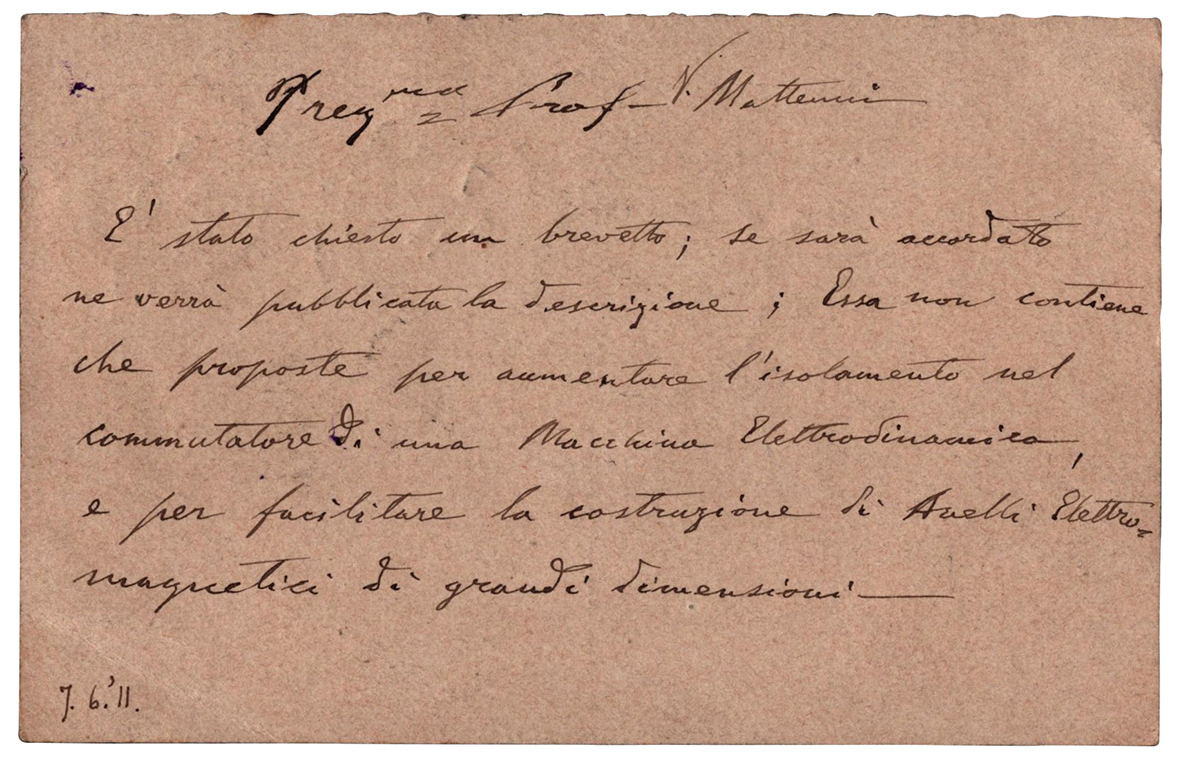 Preg^mo Prof. V. Matteucci
E' stato chiesto un brevetto; se sarà accordato
ne verrà pubblicata la descrizione; Essa non contiene
che proposte per aumentare l'isolamento nel
commutatore di una Macchina Elettrodinamica,
e per facilitare la costruzione di Anelli Elettro=
magnetici di grandi dimensioni —
7. 6.'11.